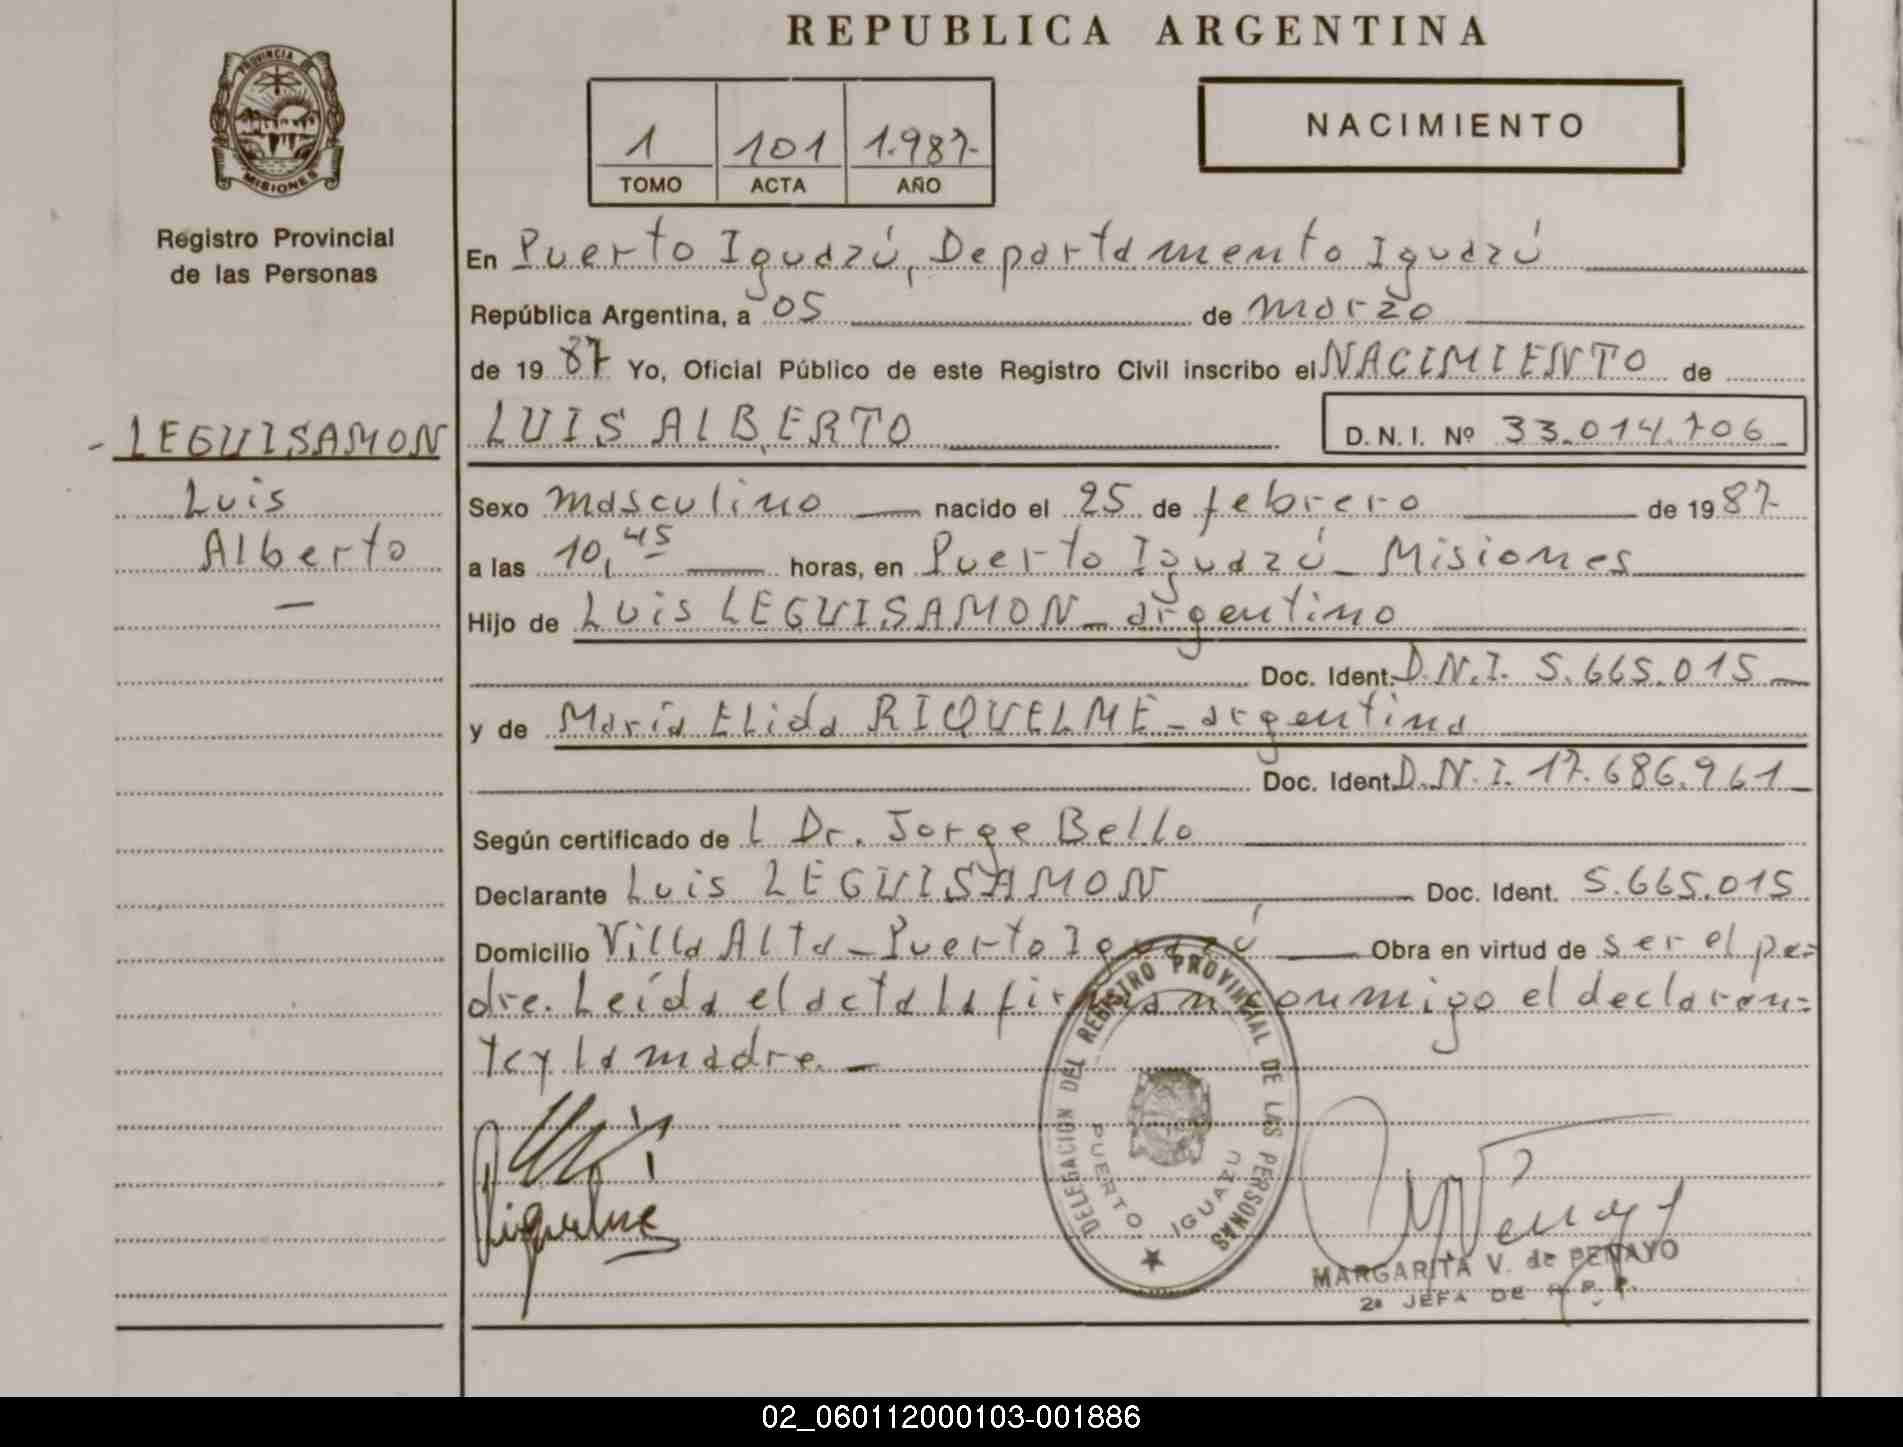 REPUBLICA ARGENTINA
PROVINCIA DE
MISIONES
Registro Provincial
de las Personas
1 101 1.987-
TOMO ACTA AÑO
NACIMIENTO
En Puerto Iguazú, Departamento Iguazú
República Argentina, a 05 de marzo
de 19 87 Yo, Oficial Público de este Registro Civil inscribo el NACIMIENTO de
- LEGUISAMON
Luis
Alberto
LUIS ALBERTO D. N. I. Nº 33.014.706
Sexo masculino nacido el 25 de febrero de 19 87-
a las 10,45 horas, en Puerto Iguazú - Misiones
Hijo de Luis LEGUISAMON - argentino
Doc. Ident. D.N.I. 5.665.015
y de María Elida RIQUELME - argentina
Doc. Ident. D.N.I. 17.686.961
Según certificado de l Dr. Jorge Bello
Declarante Luis LEGUISAMON Doc. Ident. 5.665.015
Domicilio Villa Alta - Puerto Iguazú Obra en virtud de ser el pa=
dre. Leída el acta la firman conmigo el declaran=
te y la madre. -
DELEGACION DEL REGISTRO PROVINCIAL DE LAS PERSONAS
PUERTO IGUAZU
Riquelme
MARGARITA V. de PENAYO
2a JEFA DE R. P. P.
02_060112000103-001886